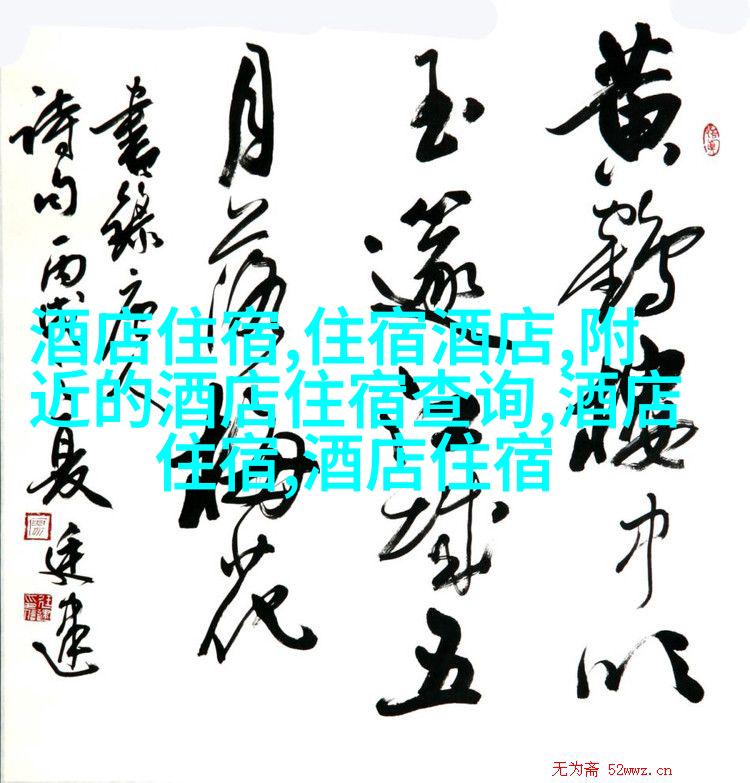 黄鹤楼中吹
玉篴江城五
月落梅花
書錄唐人
诗句丙戌夏廷建
酒店住宿,住宿酒店,附
近的酒店住宿查询,酒店
住宿,酒店住宿
无为斋 52wwz.cn